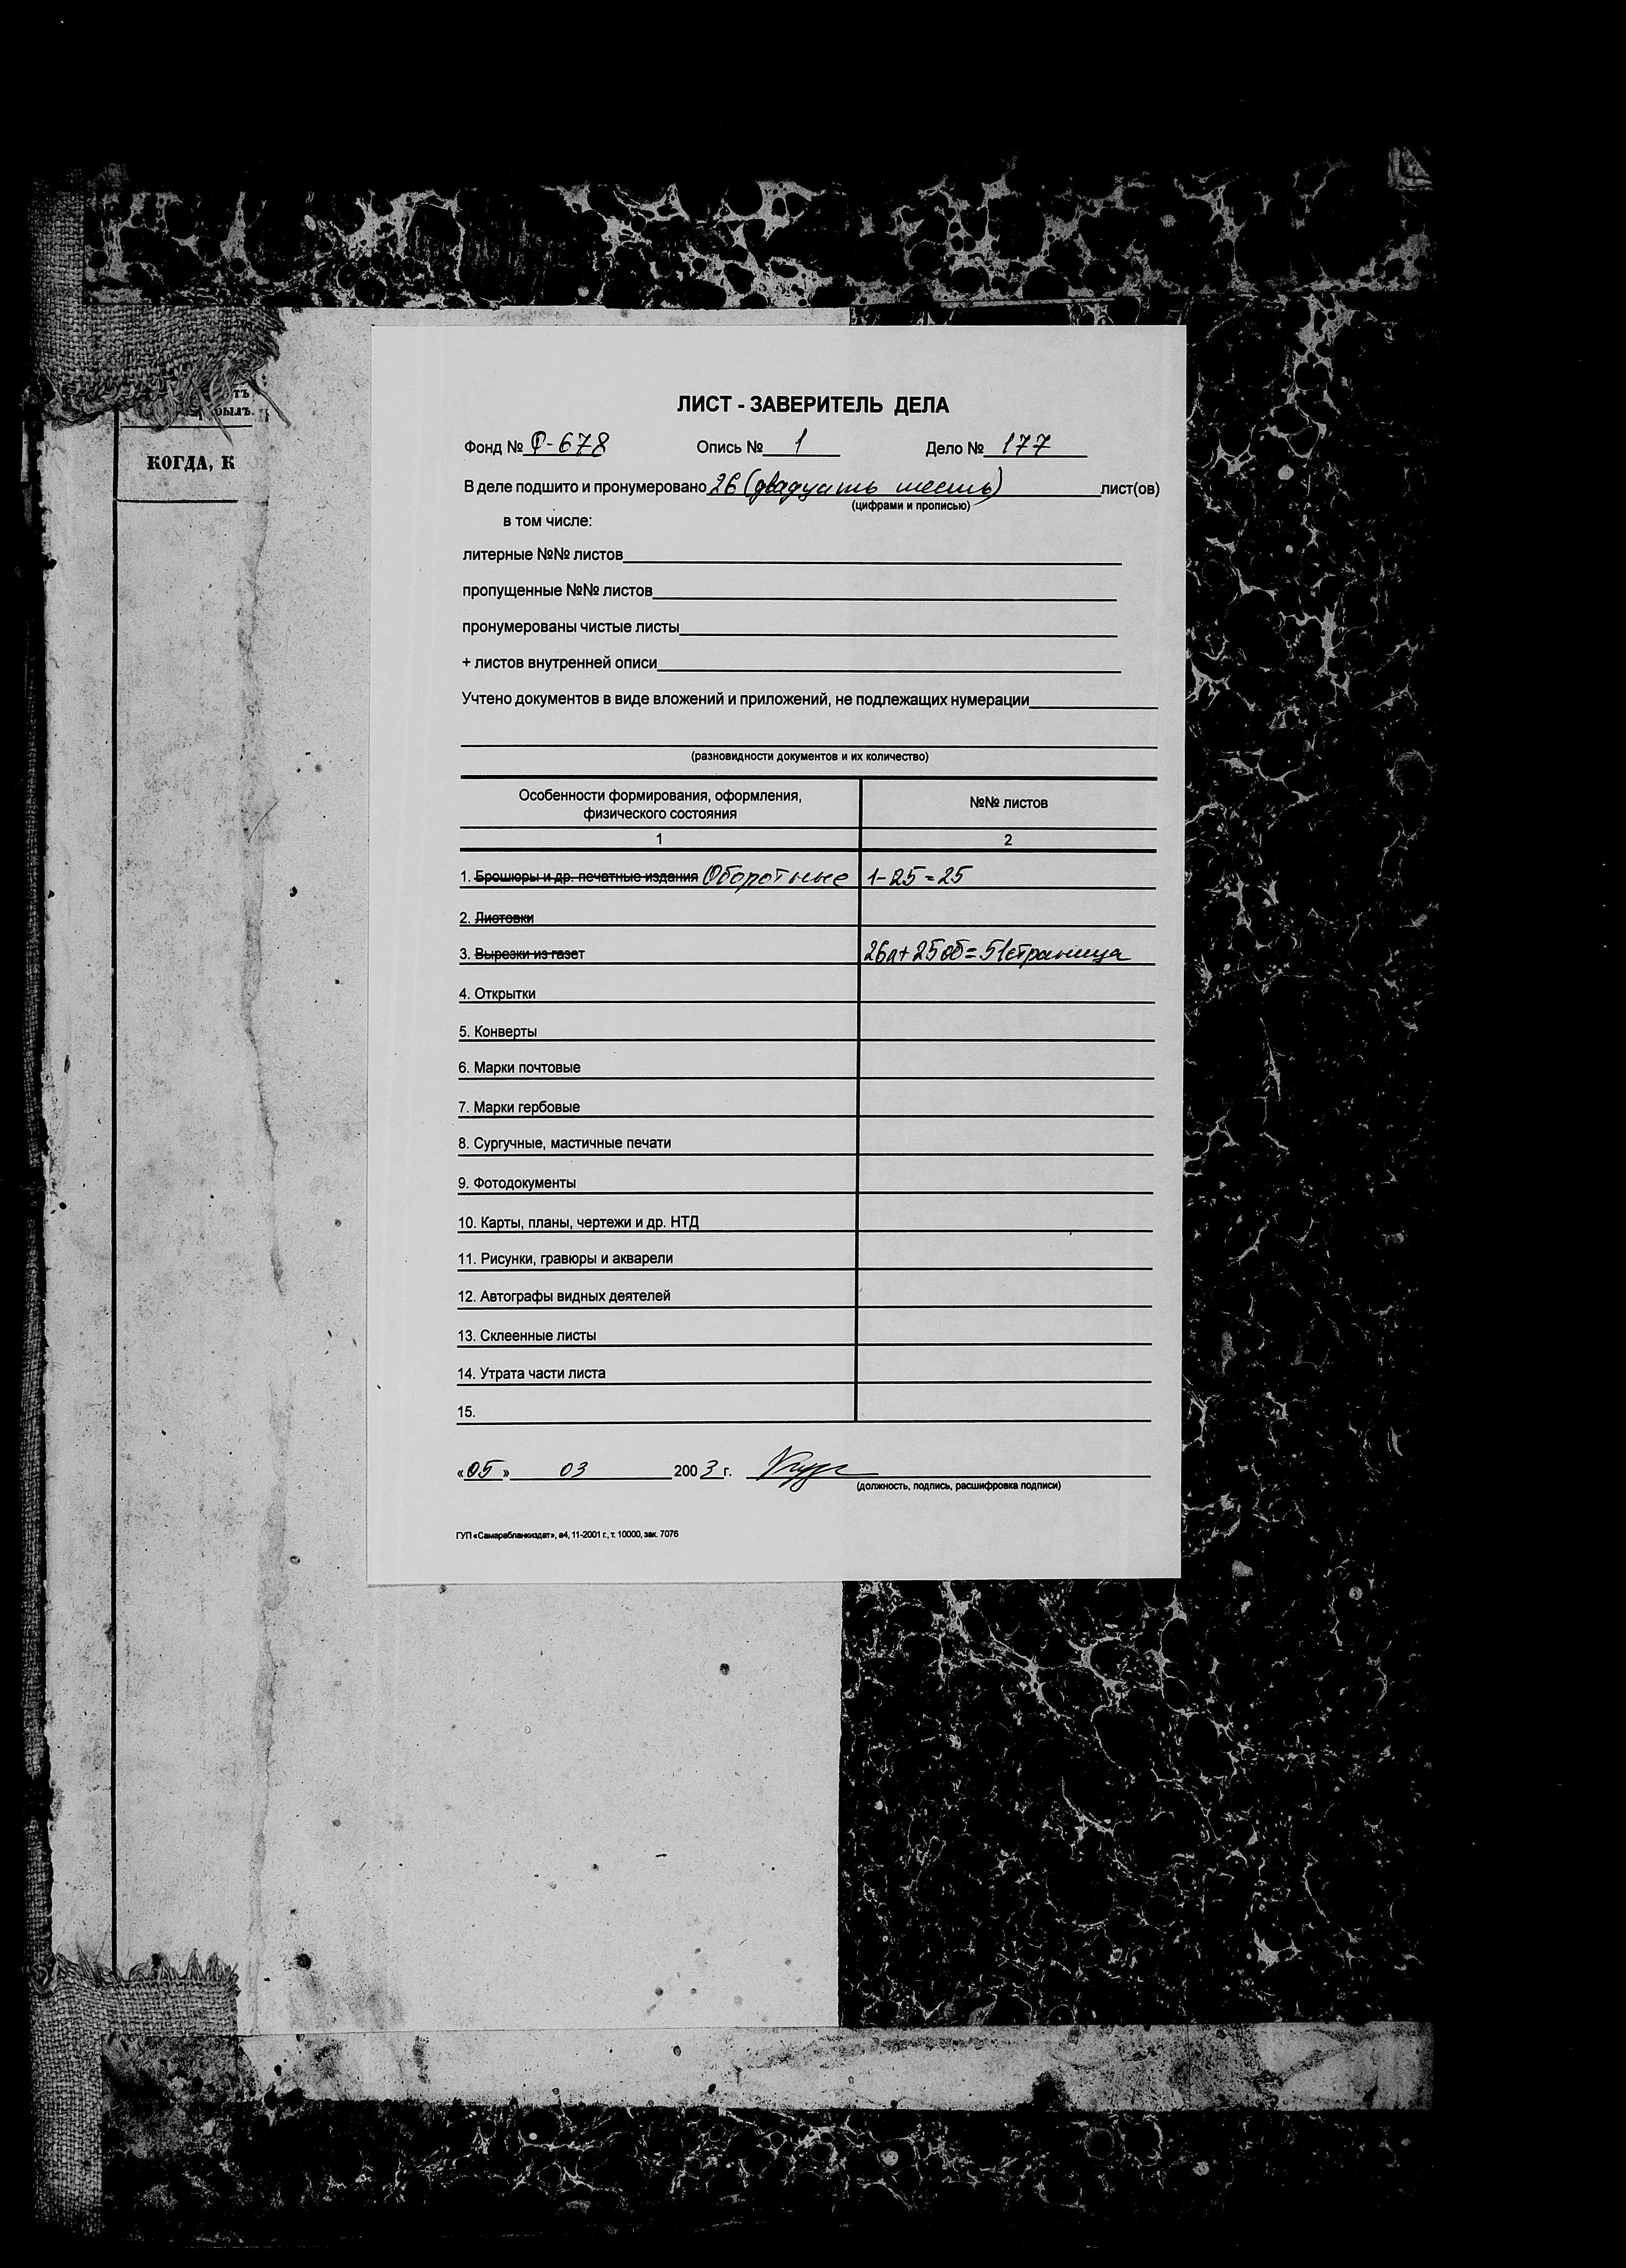 ть
былъ.
КОГДА, К
ЛИСТ - ЗАВЕРИТЕЛЬ ДЕЛА
Фонд № Ф-678 Опись № 1 Дело № 177
В деле подшито и пронумеровано 26 (двадцать шесть) лист(ов)
(цифрами и прописью)
в том числе:
литерные №№ листов
пропущенные №№ листов
пронумерованы чистые листы
+ листов внутренней описи
Учтено документов в виде вложений и приложений, не подлежащих нумерации
(разновидности документов и их количество)
Особенности формирования, оформления, №№ листов
физического состояния
1 2
1. Брошюры и др. печатные издания Оборотные 1-25=25
2. Листовки
3. Вырезки из газет 26л+25об=51страница
4. Открытки
5. Конверты
6. Марки почтовые
7. Марки гербовые
8. Сургучные, мастичные печати
9. Фотодокументы
10. Карты, планы, чертежи и др. НТД
11. Рисунки, гравюры и акварели
12. Автографы видных деятелей
13. Склеенные листы
14. Утрата части листа
15.
«05» 03 2003 г.
(должность, подпись, расшифровка подписи)
ГУП «Самарабланкиздат», а4, 11-2001 г., т. 10000, зак. 7076